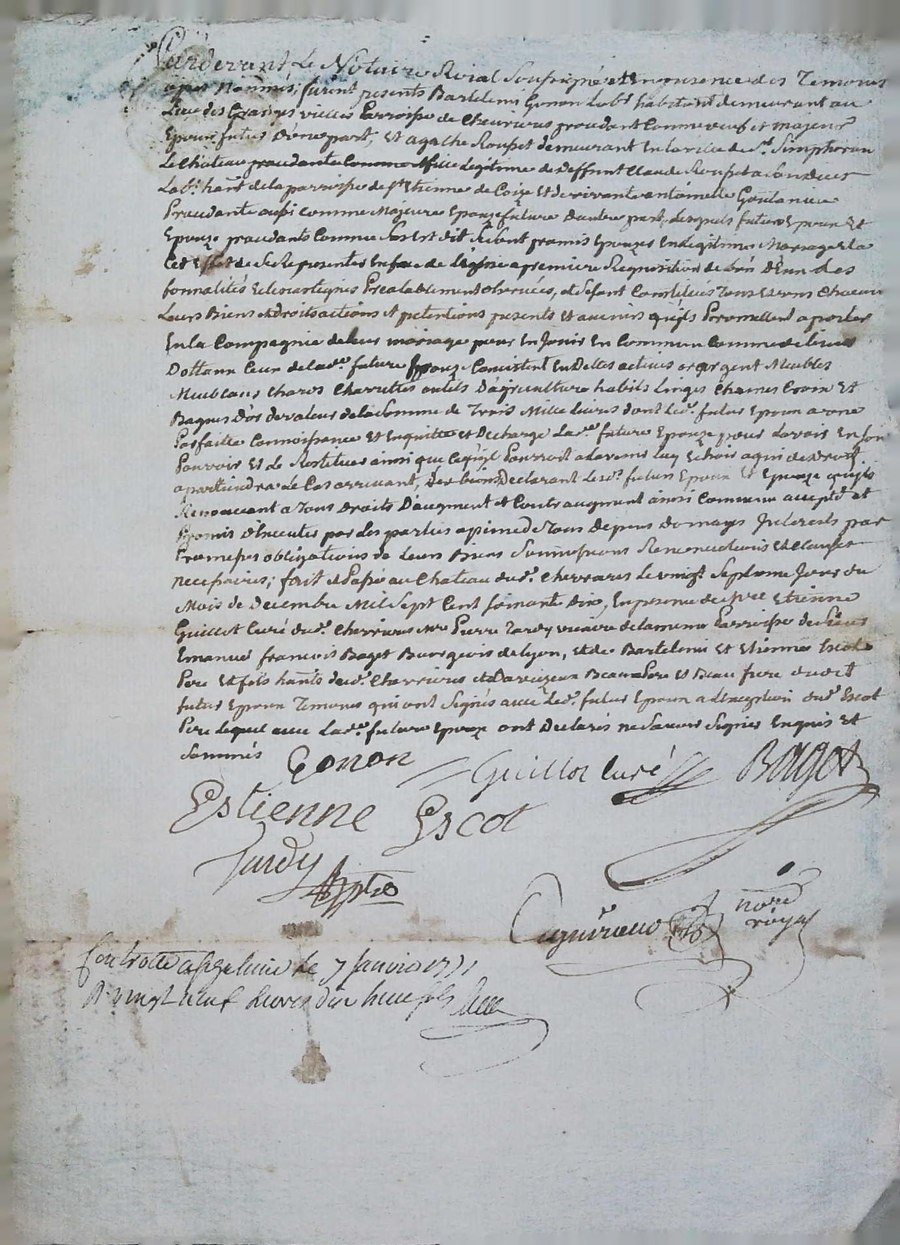 Pardevant Le Notaire Roial Soussigné et En presence des Temoins
apres Nommés, furent presents Bartelemi Gonon Lab.r habitant demeurant au
Lieu des Granges vieilles Parroisse de Chevrieres procedant Comme veuf et majeur
Epoux futur D'une part, et agathe Rouset demeurant En la ville de S.t Simphorien
Le Chateau procedante Comme fille Legitime de deffunt Claude Rouset a son deces
Lab.r ha.nt de la parroisse de S.t Etienne de Coize Et de vivante antoinette
Procedante aussi Comme Majeure Epouze future D'autre part, Lesquels futurs Epoux Et
Epouze procedants Comme Sus Est dit se sont promis Epouzer En Legitime Mariage et a
Cet Effet de se Representer En face de L'eglise a premiere Requisition de L'un D'Eux Les
formalités Eclesiastiques Prealablement observées, et se sont Constitués Tous Leurs Chacun
Leurs Biens et Droits actions et pretentions presents et avenirs qu'ils Promettent aporter
En La Compagnie de leur mariage pour En Jouir En Commun Comme de biens
Dottaux Ceux de Lad.e future Epouze Consistent En Dettes actives argent Meubles
Meublans Chares Charettes outils D'agriculture habits Linges Chaines Croix Et
Bagues D'or de valeur de la Somme de Trois Mille Livres dont Led. futur Epoux a une
Parfaite Connoissance Et En quitte et Decharge Lad.e future Epouze pour Lavoir En Son
Pouvoir Et de Restituer ainsi que Ce qu'il Pourroit a Lavenir Luy Echoir a qui de Droit
apartiendra Le Cas arrivant, Des biens Declarant Lesd. futurs Epoux Et Epouze qu'ils
Renoncent a Tous Droits D'augment et Contraugment ainsi Convenu accepté et
Promis D'Executer par Les parties a peine de Tous Depens Domages Interests par
Promesses obligations de Leurs Biens Soumissions Renonciations Et Clauses
necessaires; fait et Passé au Chateau dud. Chevrieres Le vingt Septieme Jour du
Mois de Decembre Mil Sept Cent Soixante dix, En presence de Etienne
Guillot Curé dud. Chevrieres Pierre Tardy vicaire de la meme Parroisse de Sieur
Emanuel François Baget Bourgeois de Lyon, et de Bartelemi Et Etienne Escot
Pere Et fils ha.nts dud. Chevrieres Beaupere et Beau frere dudit
futur Epoux Temoins qui ont Signés avec Led. futur Epoux a L'exception dud. Escot
Pere Lequel avec Lad.e future Epouze ont Declarés ne Savoir Signer Enquis Et
Sommés
Gonon Guillot Curé Baget
Estienne Escot
Tardy
not.re
royal
Controllé le 7 Janvier 1771
R. vingt neuf Livres dix huit sols